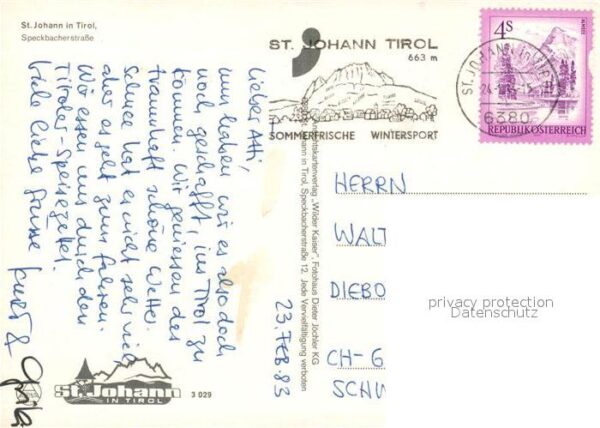 St. Johann in Tirol,
Speckbacherstraße
ST. JOHANN TIROL
663 m
SOMMERFRISCHE WINTERSPORT
ST. JOHANN in TIROL
6380
4S
ALMSEE
REPUBLIK ÖSTERREICH
Lieber Atti,
nun haben wir es also doch
noch geschafft, ins Tirol zu
kommen. Wir geniessen das
traumhaft schöne Wetter.
Schnee hat es nicht sehr viel,
aber es geht zum fahren.
Wir essen uns durch den
Tiroler-Speisezettel.
Viele liebe Grüsse
Kurt &
23. FEB. 83
Ansichtskartenverlag „Wilder Kaiser“, Fotohaus Dieter Jöchler KG
St. Johann in Tirol, Speckbacherstraße 12. Jede Vervielfältigung verboten
HERRN
WALT
DIEBO
CH-6
SCHW
privacy protection
Datenschutz
St. Johann
IN TIROL
3 029